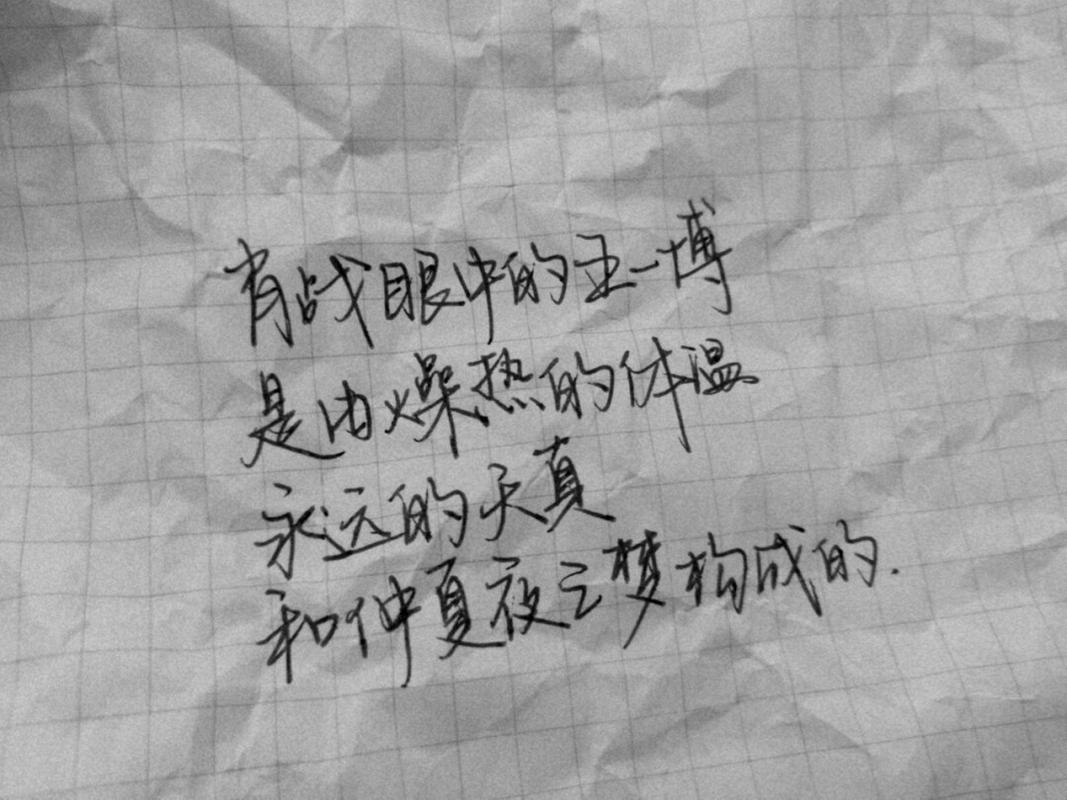 肖战眼中的王一博
是由燥热的体温
永远的天真
和仲夏夜之梦构成的.